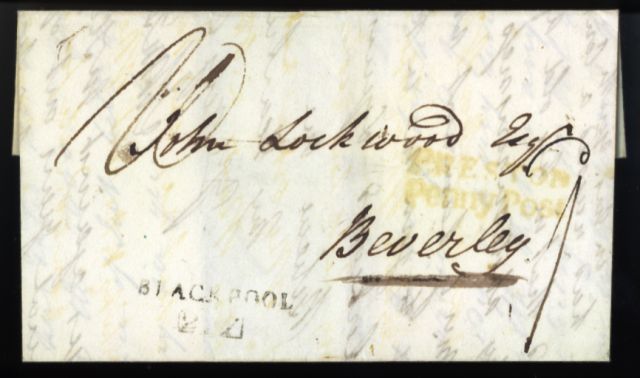 John Lockwood Esq
PRESTON
Penny Post
Beverley
BLACKPOOL